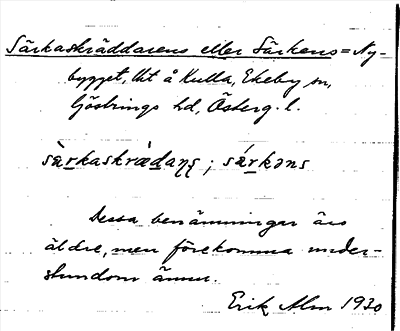 Särkaskräddarens eller Särkens = Ny-
bygget, lht å Kulla, Ekeby sn,
Göstrings hd, Österg. l.
sàrkaskrædaɳʂ; sárkəns
Dessa benämningar äro
äldre, men förekomma under-
stundom ännu.
Erik Alm 1930